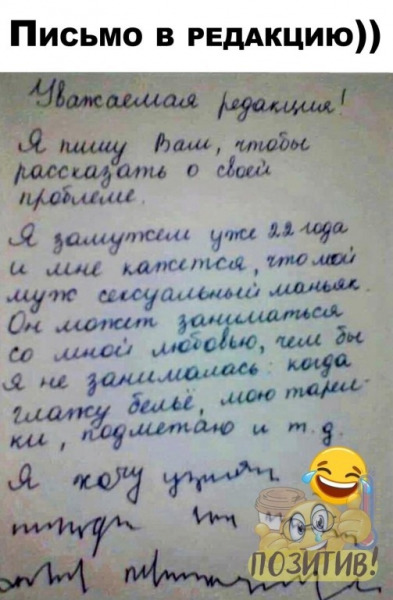 Письмо в редакцию))
Уважаемая редакция!
Я пишу Вам, чтобы
рассказать о своей
проблеме.
Я замужем уже 22 года
и мне кажется, что мой
муж сексуальный маньяк.
Он может заниматься
со мной любовью, чем бы
я не занималась: когда
глажу бельё, мою тарел-
ки, подметаю и т.д.
Я хочу
ПОЗИТИВ!